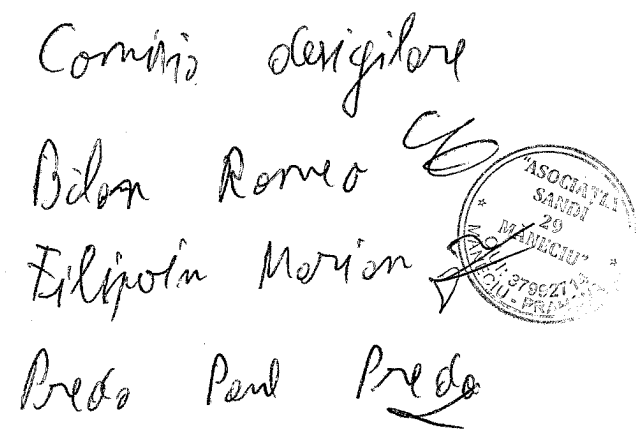 Comisia desigilare
Bilan Romeo
Filipoiu Marian
Preda Paul Preda
"ASOCIAŢIA
SANDI
29
MANECIU"
C.U.I: 3799271
MANECIU - PRAHOVA